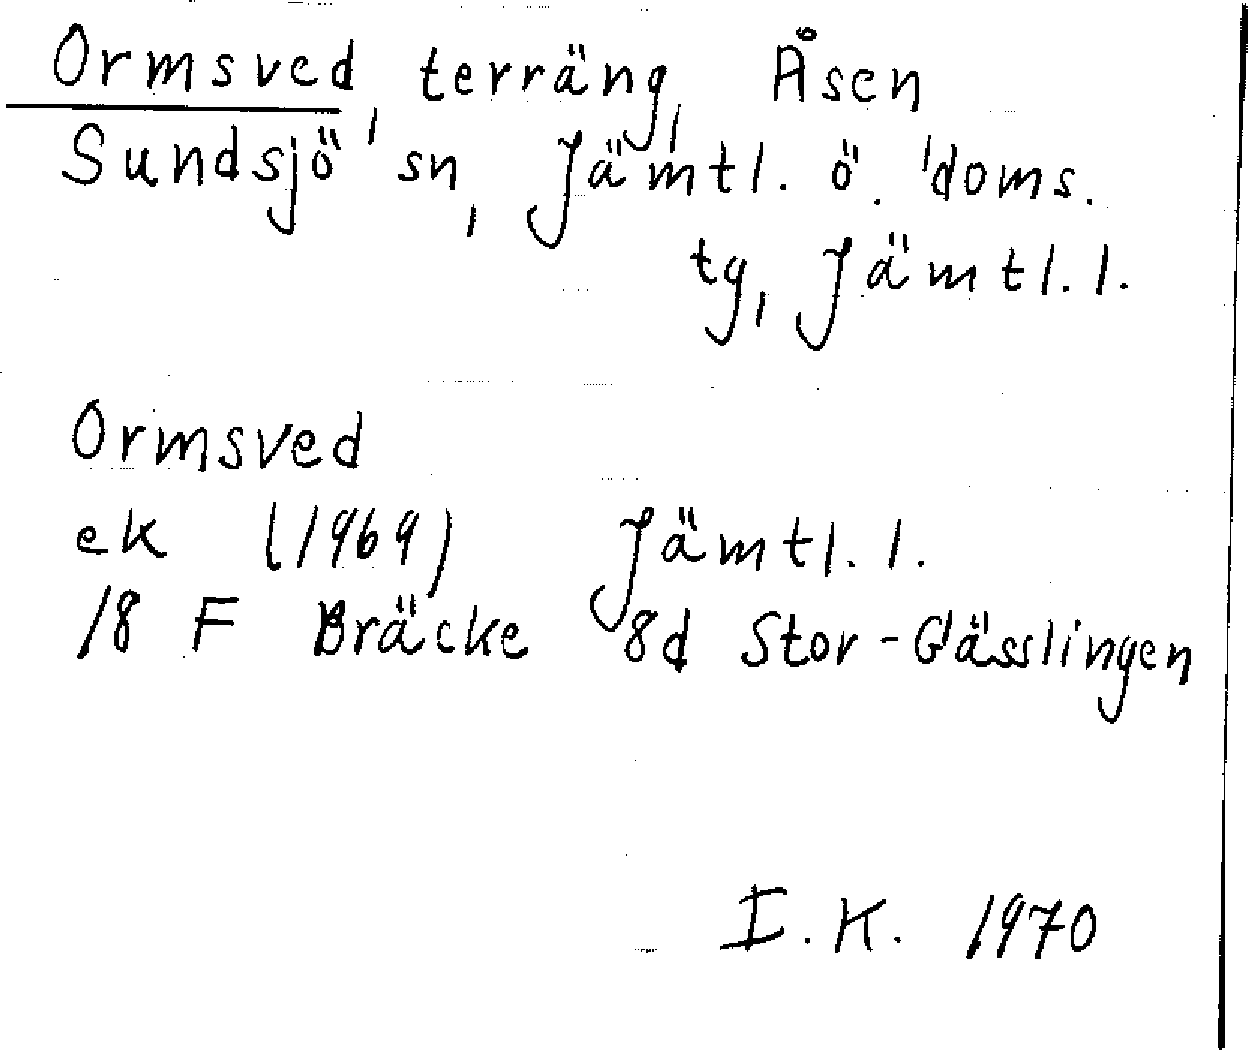 Ormsved, terräng, Åsen
Sundsjö sn, Jämtl. ö. doms.
tg, Jämtl. l.
Ormsved
ek (1969) Jämtl. l.
18 F Bräcke 8d Stor-Gässlingen
I.K. 1970